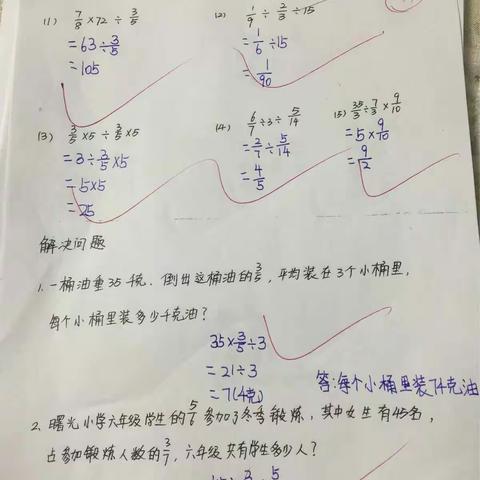 (1) 7/8 × 72 ÷ 3/5
= 63 ÷ 3/5
= 105
(2) 1/9 ÷ 2/3 ÷ 15
= 1/6 ÷ 15
= 1/90
(3) 3/5 × 5 ÷ 3/5 × 5
= 3 ÷ 3/5 × 5
= 5 × 5
= 25
(4) 6/7 ÷ 3 ÷ 5/14
= 2/7 ÷ 5/14
= 4/5
(5) 35/3 ÷ 7/3 × 9/10
= 5 × 9/10
= 9/2
解决问题
1. 一桶油重35千克. 倒出这桶油的3/5, 平均装在3个小桶里,
每个小桶里装多少千克油?
35 × 3/5 ÷ 3
= 21 ÷ 3
= 7(千克)
答:每个小桶里装7千克油
2. 曙光小学六年级学生的5/6参加了冬季锻炼, 其中女生有45名,
占参加锻炼人数的3/7, 六年级共有学生多少人?